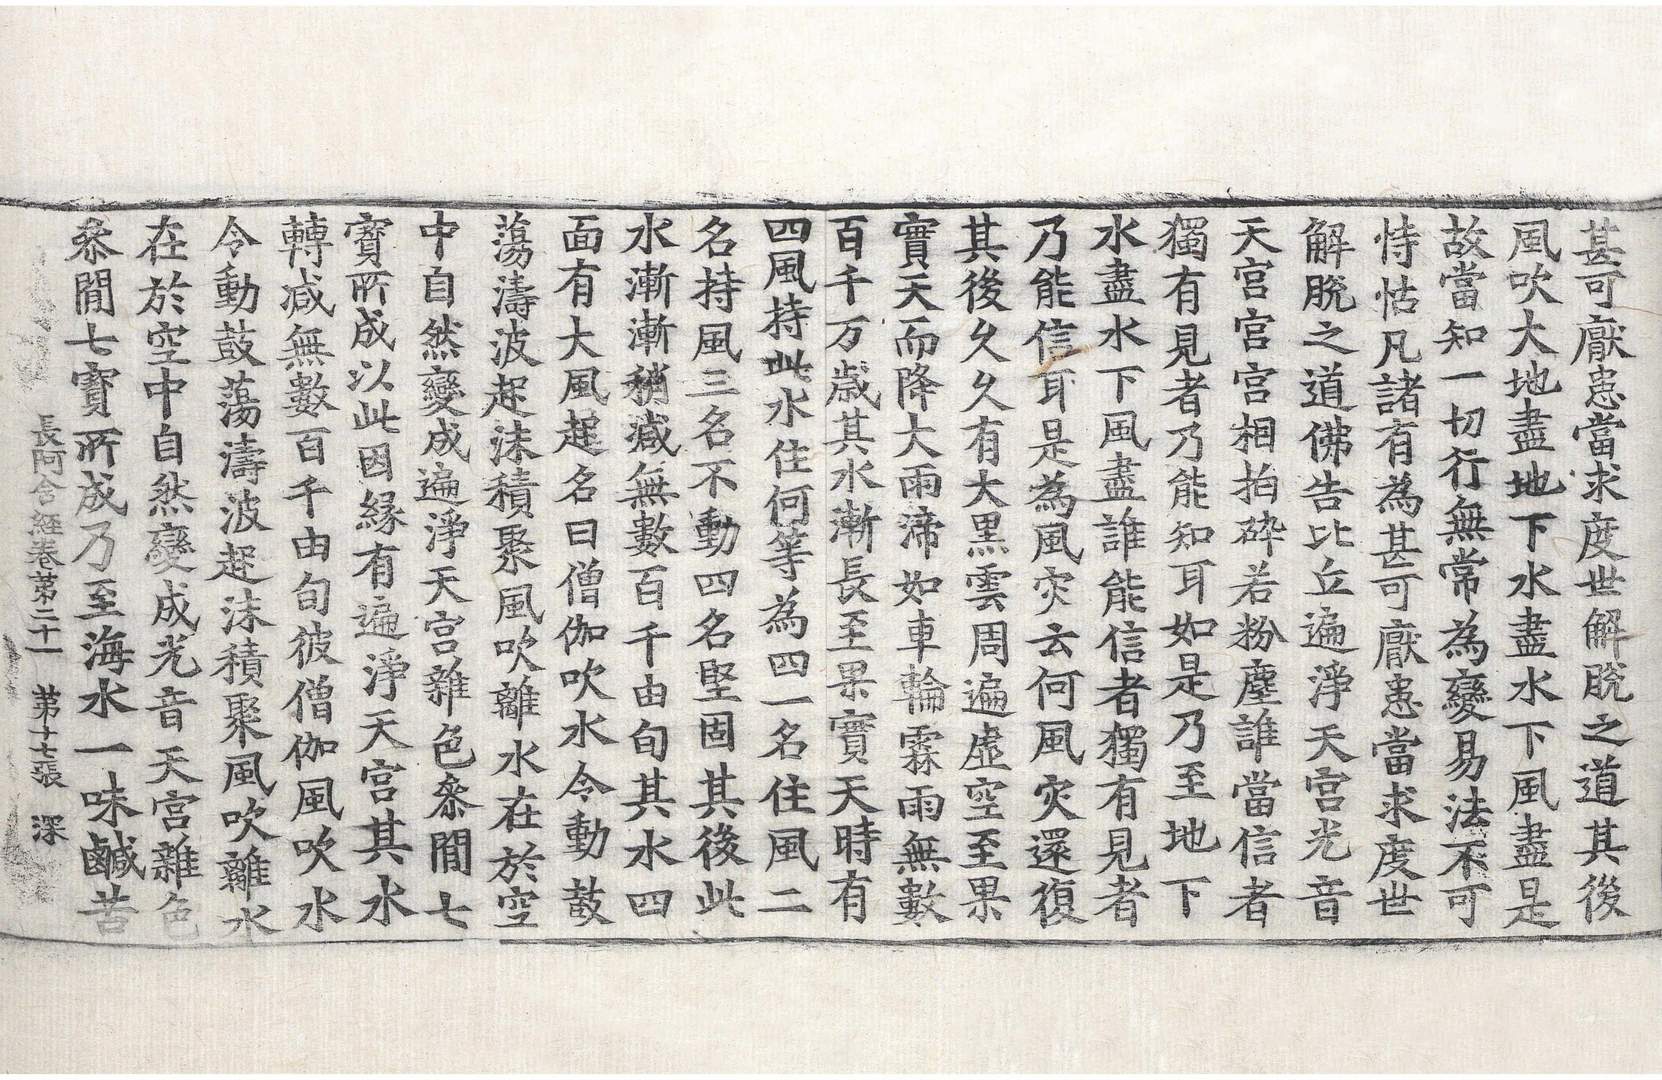 甚可厭患當求度世解脫之道其後
風吹大地盡地下水盡水下風盡是
故當知一切行無常為變易法不可
恃怙凡諸有為甚可厭患當求度世
解脫之道佛告比丘遍淨天宮光音
天宮宮宮相拍碎若粉塵誰當信者
獨有見者乃能知耳如是乃至地下
水盡水下風盡誰能信者獨有見者
乃能信耳是為風灾云何風灾還復
其後久久有大黑雲周遍虛空至果
實天而降大雨渧如車輪霖雨無數
百千万歲其水漸長至果實天時有
四風持此水住何等為四一名住風二
名持風三名不動四名堅固其後此
水漸漸稍減無數百千由旬其水四
面有大風起名曰僧伽吹水令動鼓
蕩濤波起沫積聚風吹離水在於空
中自然變成遍淨天宮雜色叅閒七
寶所成以此因緣有遍淨天宮其水
轉減無數百千由旬彼僧伽風吹水
令動鼓蕩濤波起沫積聚風吹離水
在於空中自然變成光音天宮雜色
叅閒七寶所成乃至海水一味鹹苦
長阿含經卷第二十一 第十七張 深